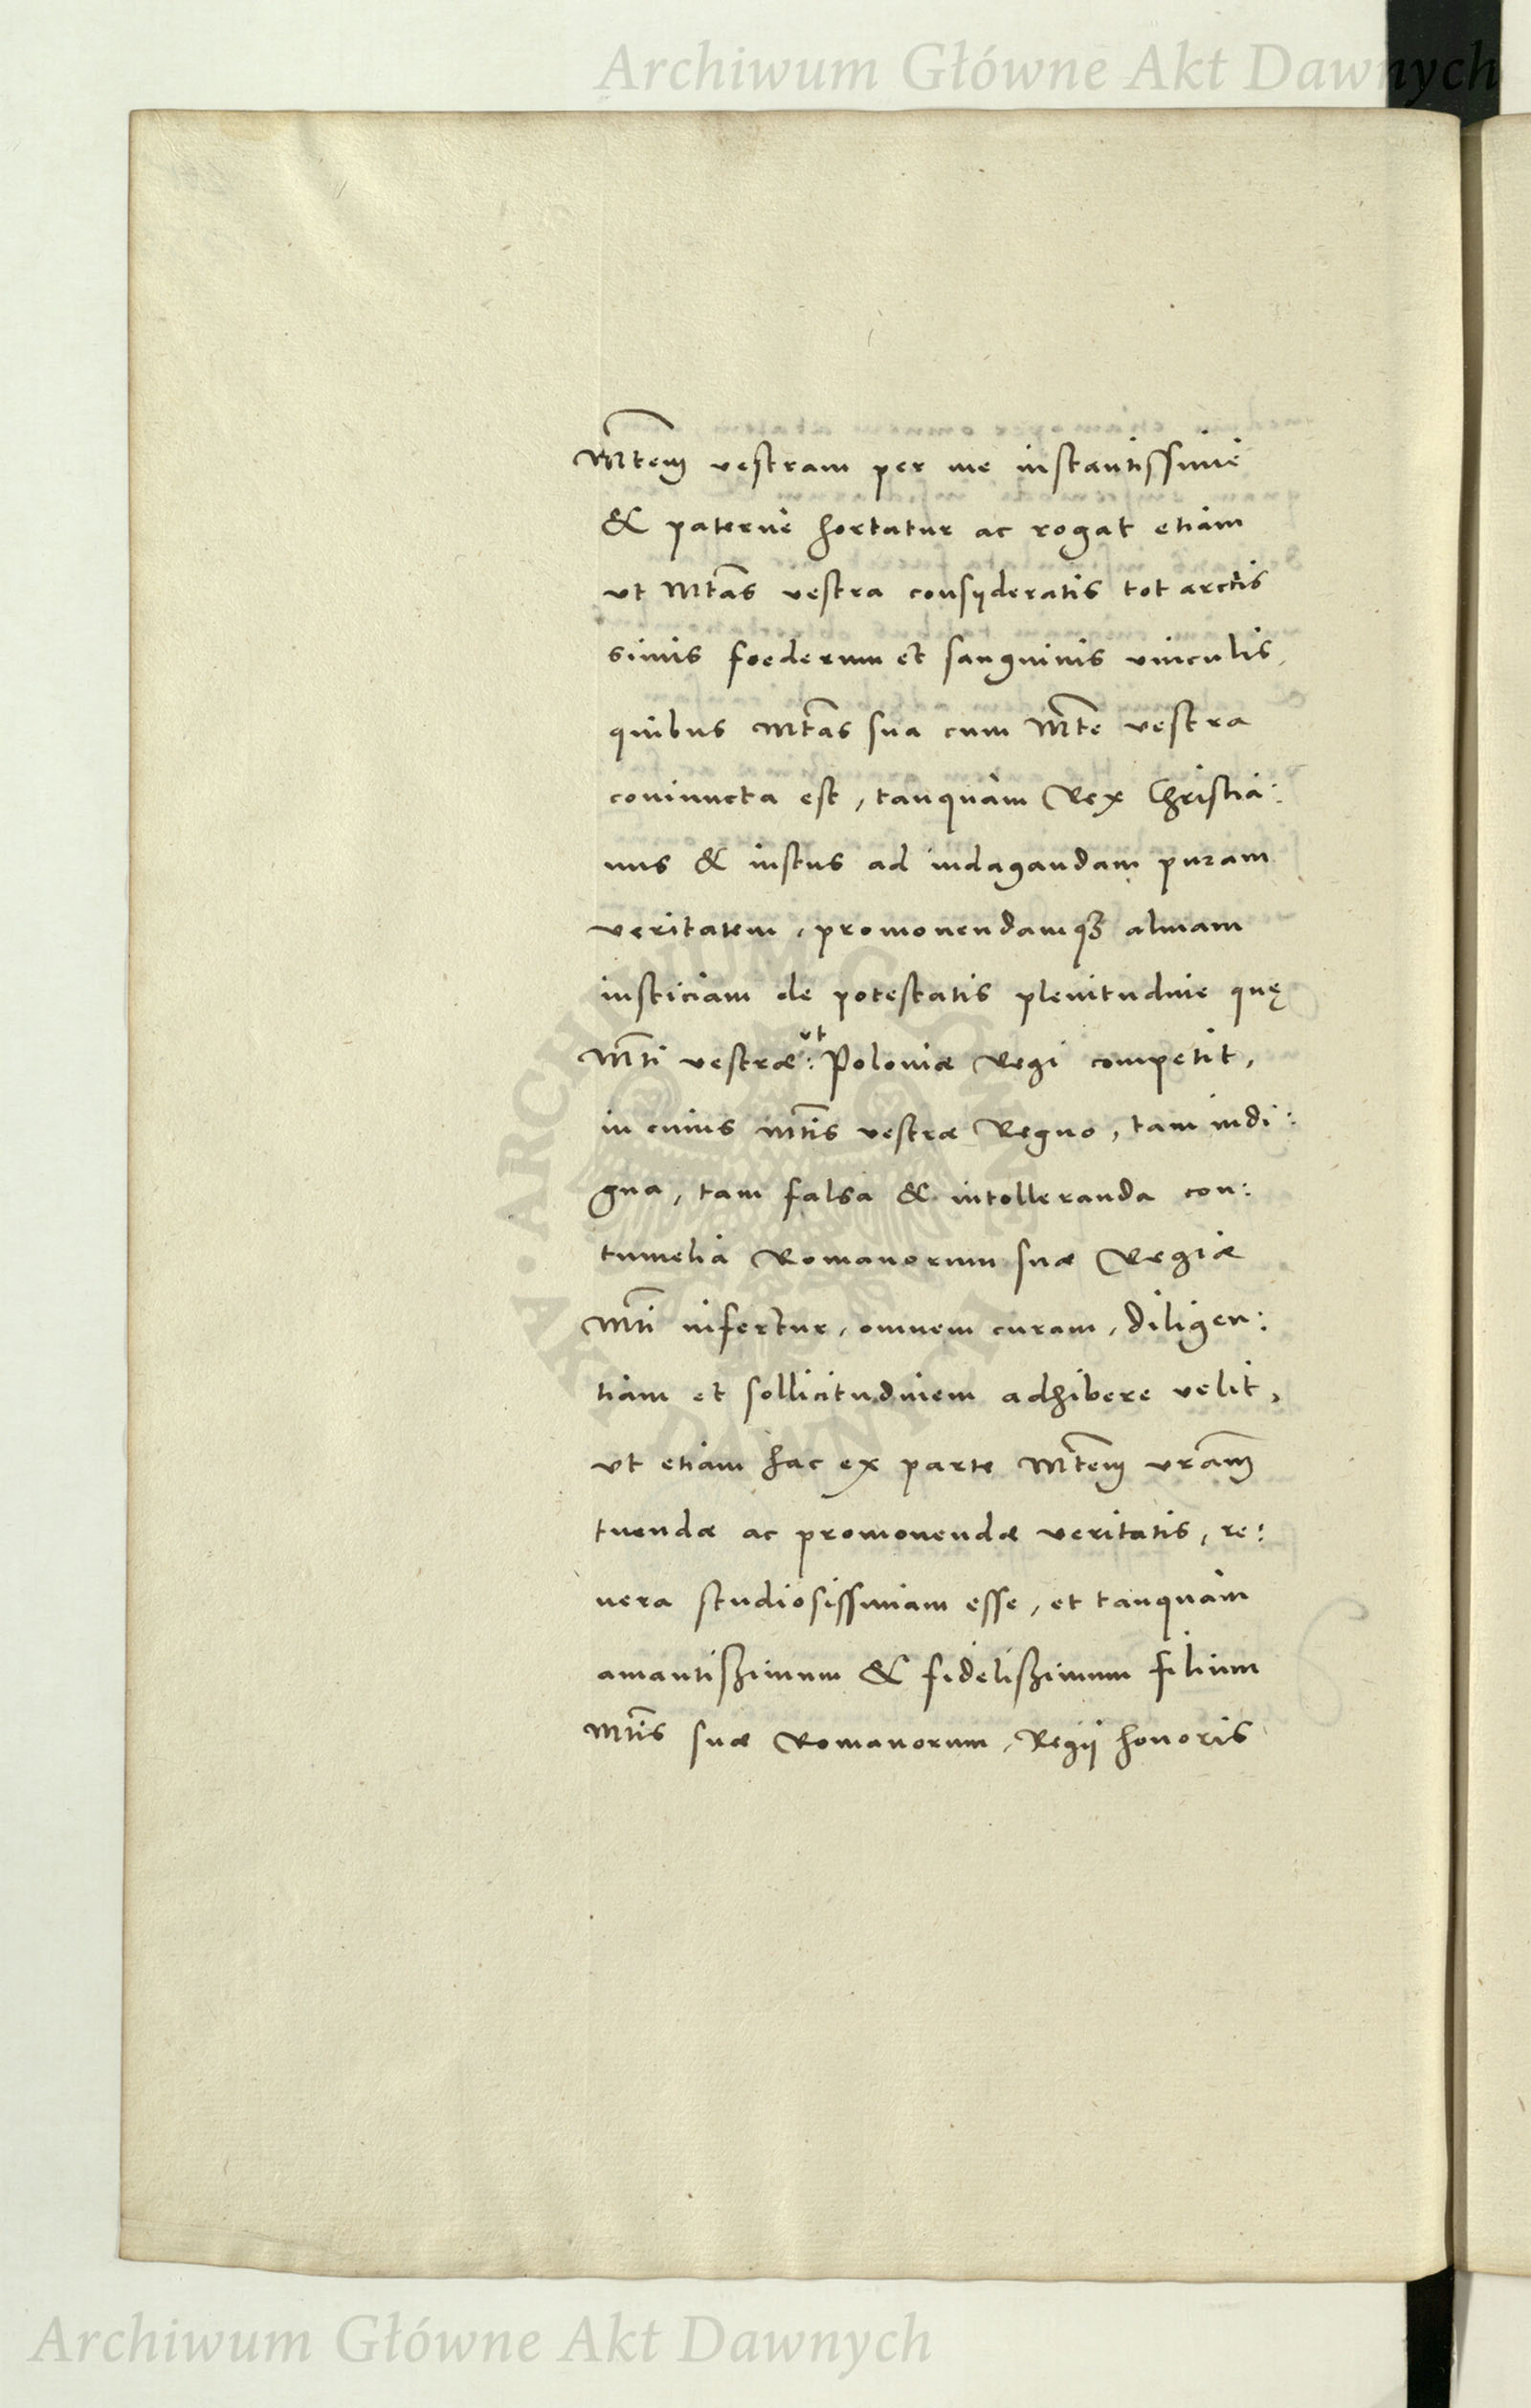 Archiwum Główne Akt Dawnych
Mtem vestram per me instantissime
& paterne hortatur ac rogat etiam
ut Mtas vestra consyderatis tot arctis
simis foederum et sanguinis vinculis,
quibus Mtas sua cum Mte vestra
coniuncta est, tanquam Rex Christia:
nus & iustus ad indagandam puram
veritatem, promovendamqȝ almam
iusticiam de potestatis plenitudine quę
Mti vestræ: ut Poloniæ Regi competit,
in cuius Mtis vestræ Regno, tam indi:
gna, tam falsa & intolleranda con:
tumelia Romanorum suæ Regiæ
Mti infertur, omnem curam, diligen:
tiam et sollicitudinem adhibere velit,
ut etiam hac ex parte Mtem vram
tuendæ ac promovendæ veritatis, re:
vera studiosissimam esse, et tanquam
amantißimum & fidelißimum filium
Mtis suæ Romanorum, Regij honoris
ARCHIWUM GŁÓWNE AKT DAWNYCH
Archiwum Główne Akt Dawnych